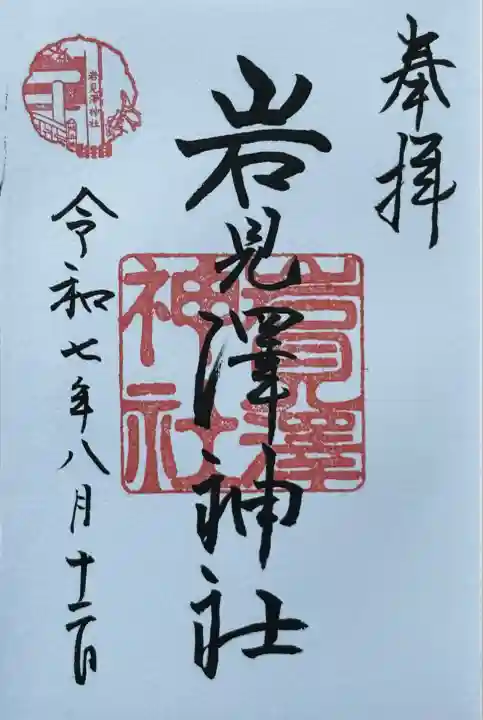 奉拝
岩見澤神社
岩見澤
神社
令和七年八月十二日
岩見澤神社